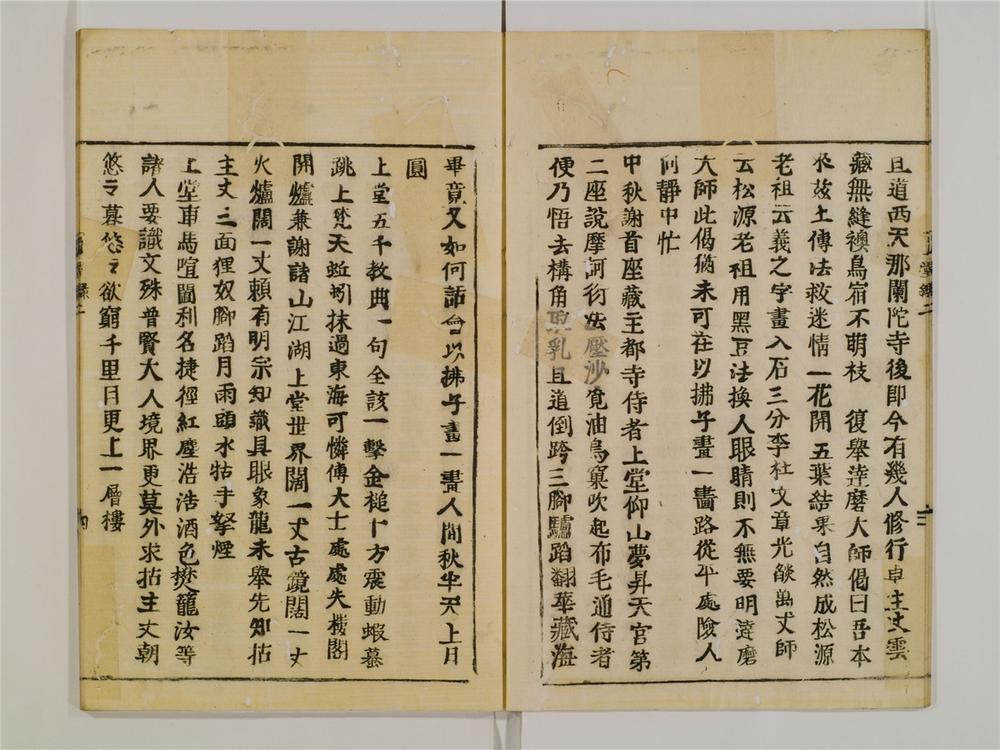 且道西天那闌陀寺後即今有幾人修行卓主丈雲
藏無縫襖鳥宿不萌枝　復舉達磨大師偈曰吾本
來茲土傳法救迷情一花開五葉結果自然成松源
老祖云義之字畫入石三分李杜文章光燄萬丈師
云松源老祖用黑豆法換人眼睛則不無要明達磨
大師此偈猶未可在以拂子畫一畫路從平處險人
向靜中忙
中秋謝首座藏主都寺侍者上堂仰山夢昇天官第
二座說摩訶衍法壓沙覓油鳥窠吹起布毛通侍者
便乃悟去構角取乳且道倒跨三腳驢蹈翻華藏海
畢竟又如何話會以拂子畫一畫人間秋半天上月
圓
上堂五千教典一句全該一擊金槌十方震動蝦蟇
跳上梵天蚯蚓抹過東海可憐傅大士處處失樓閣
開爐兼謝諸山江湖上堂世界闊一丈古鏡闊一丈
火爐闊一丈賴有明宗知識具眼象龍未舉先知拈
主丈云面狸奴腳蹈月兩頭水牯手拏煙
上堂車馬喧闐利名捷徑紅塵浩浩酒色樊籠汝等
諸人要識文殊普賢大人境界更莫外求拈主丈朝
悠々暮悠々欲窮千里目更上一層樓